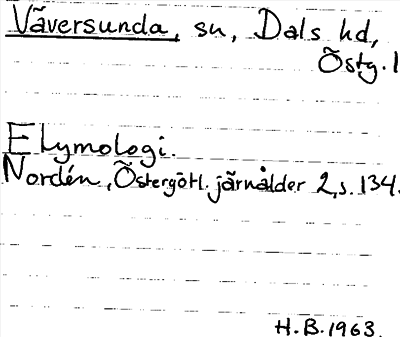 Väversunda, sn, Dals hd,
Östg. l
Etymologi.
Nordén, Östergötl. järnålder 2, s. 134.
H.B. 1963.